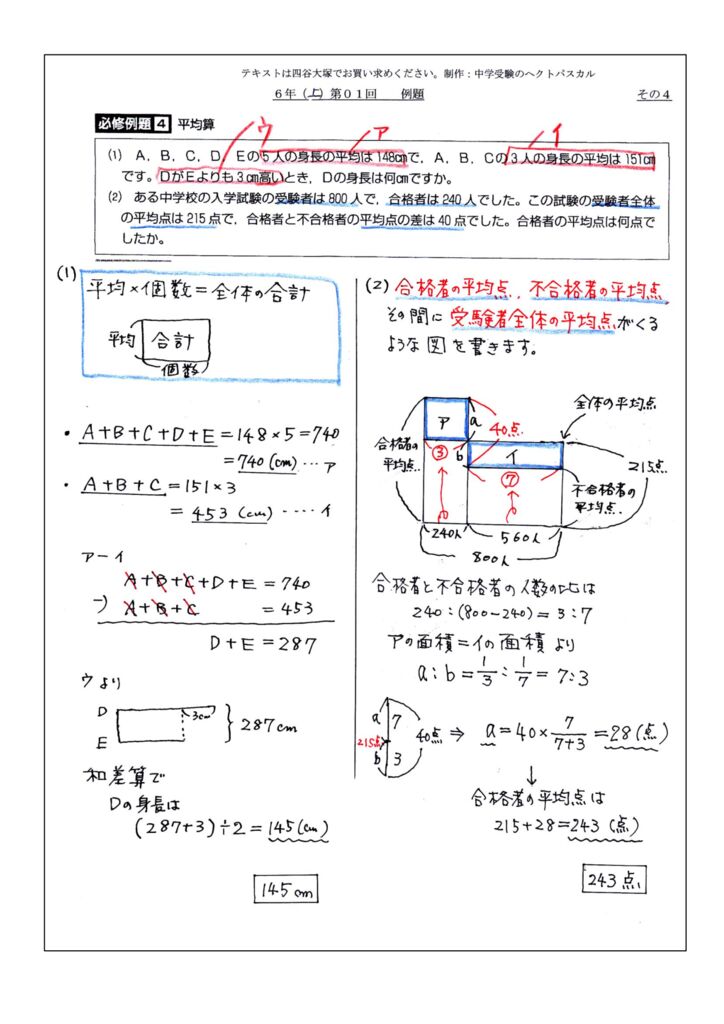 テキストは四谷大塚でお買い求めください。制作：中学受験のヘクトパスカル
6年（上）第01回 例題 その4
必修例題 4 平均算
ウ ア イ
(1) A，B，C，D，Eの5人の身長の平均は148cmで，A，B，Cの3人の身長の平均は151cm
です。DがEよりも3cm高いとき，Dの身長は何cmですか。
(2) ある中学校の入学試験の受験者は800人で，合格者は240人でした。この試験の受験者全体
の平均点は215点で，合格者と不合格者の平均点の差は40点でした。合格者の平均点は何点で
したか。
(1)
平均×個数=全体の合計
平均 合計
個数
・A+B+C+D+E=148×5=740
=740(cm)…ア
・A+B+C=151×3
=453(cm)‥‥イ
アーイ
A+B+C+D+E=740
-) A+B+C =453
D+E=287
ウより
D 3cm
E
287cm
和差算で
Dの身長は
(287+3)÷2=145(cm)
145cm
(2) 合格者の平均点，不合格者の平均点，
その間に受験者全体の平均点がくる
ような図を書きます。
全体の平均点
ア a 40点
合格者の平均点
③ b イ
⑦
215点
不合格者の平均点
240人 560人
800人
合格者と不合格者の人数の比は
240:(800-240)=3:7
アの面積=イの面積より
a:b=1/3:1/7=7:3
a 7
215点 40点 ⇒ a=40×7/(7+3)=28(点)
b 3
↓
合格者の平均点は
215+28=243(点)
243点